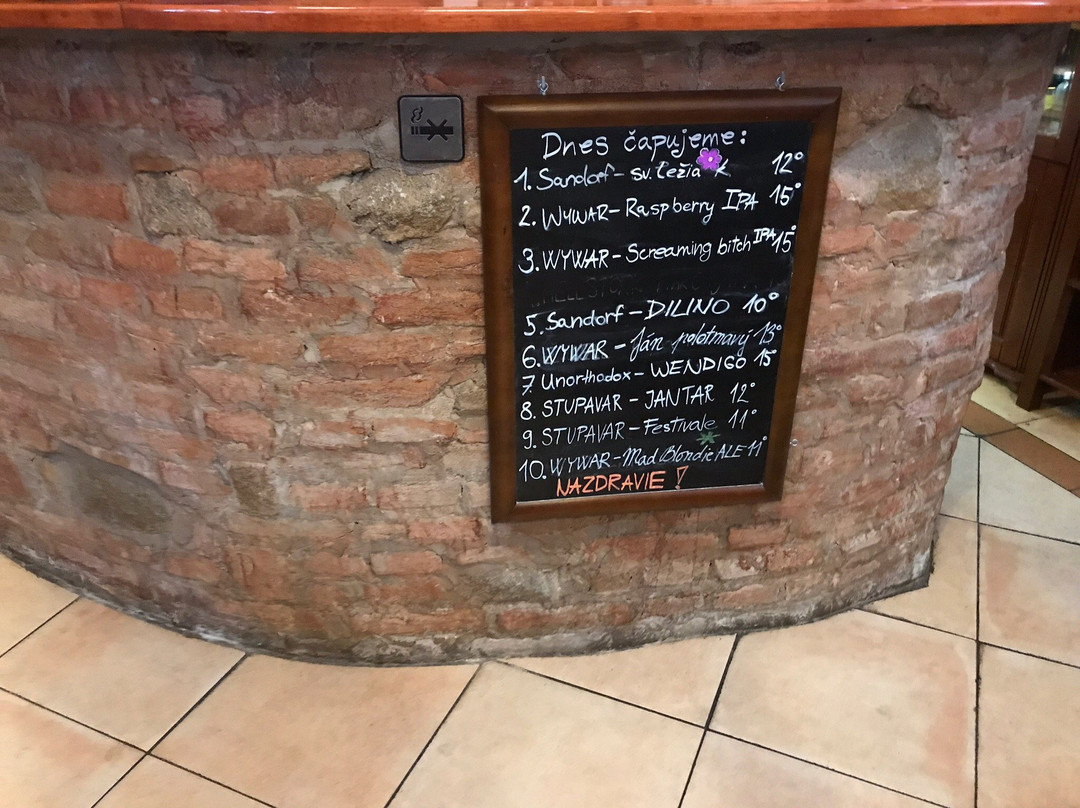 Dnes čapujeme:
1. Sandorf - sv. ležiak 12°
2. WYWAR - Raspberry IPA 15°
3. WYWAR - Screaming bitch IPA 15°
5. Sandorf - DILINO 10°
6. WYWAR - Ján polotmavý 13°
7. Unorthodox - WENDIGO 15°
8. STUPAVAR - JANTAR 12°
9. STUPAVAR - Festivale 11°
10. WYWAR - Mad Blondie ALE 11°
NAZDRAVIE !